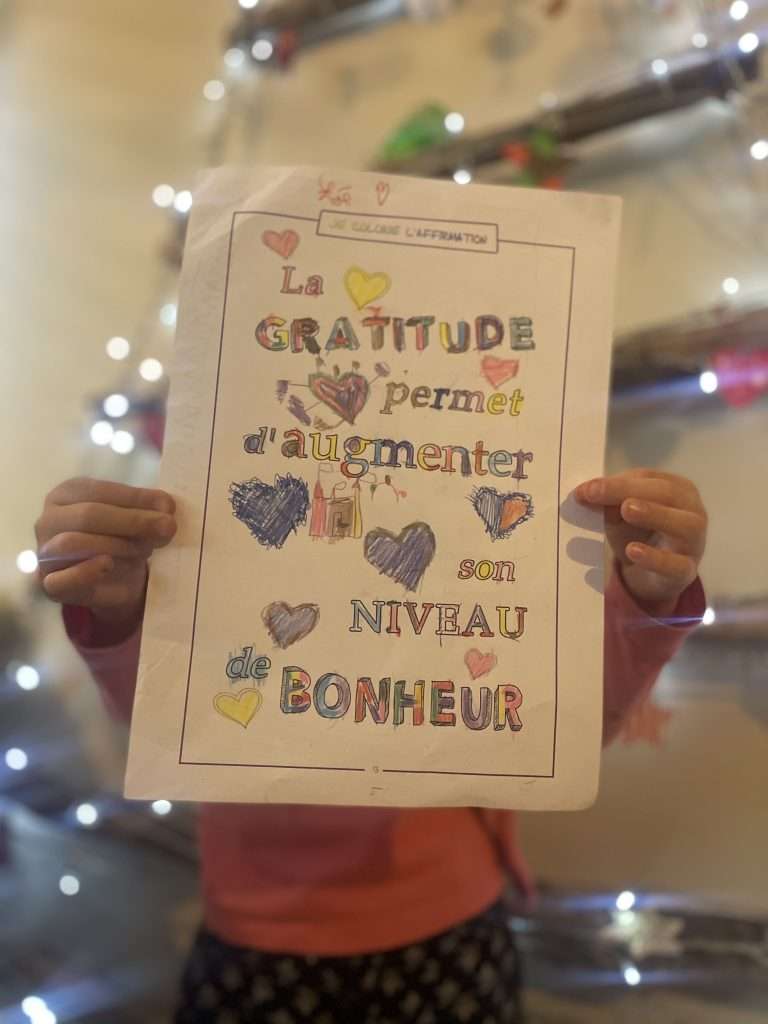 JE COLORIE L'AFFIRMATION
La
GRATITUDE
permet
d'augmenter
son
NIVEAU
de
BONHEUR